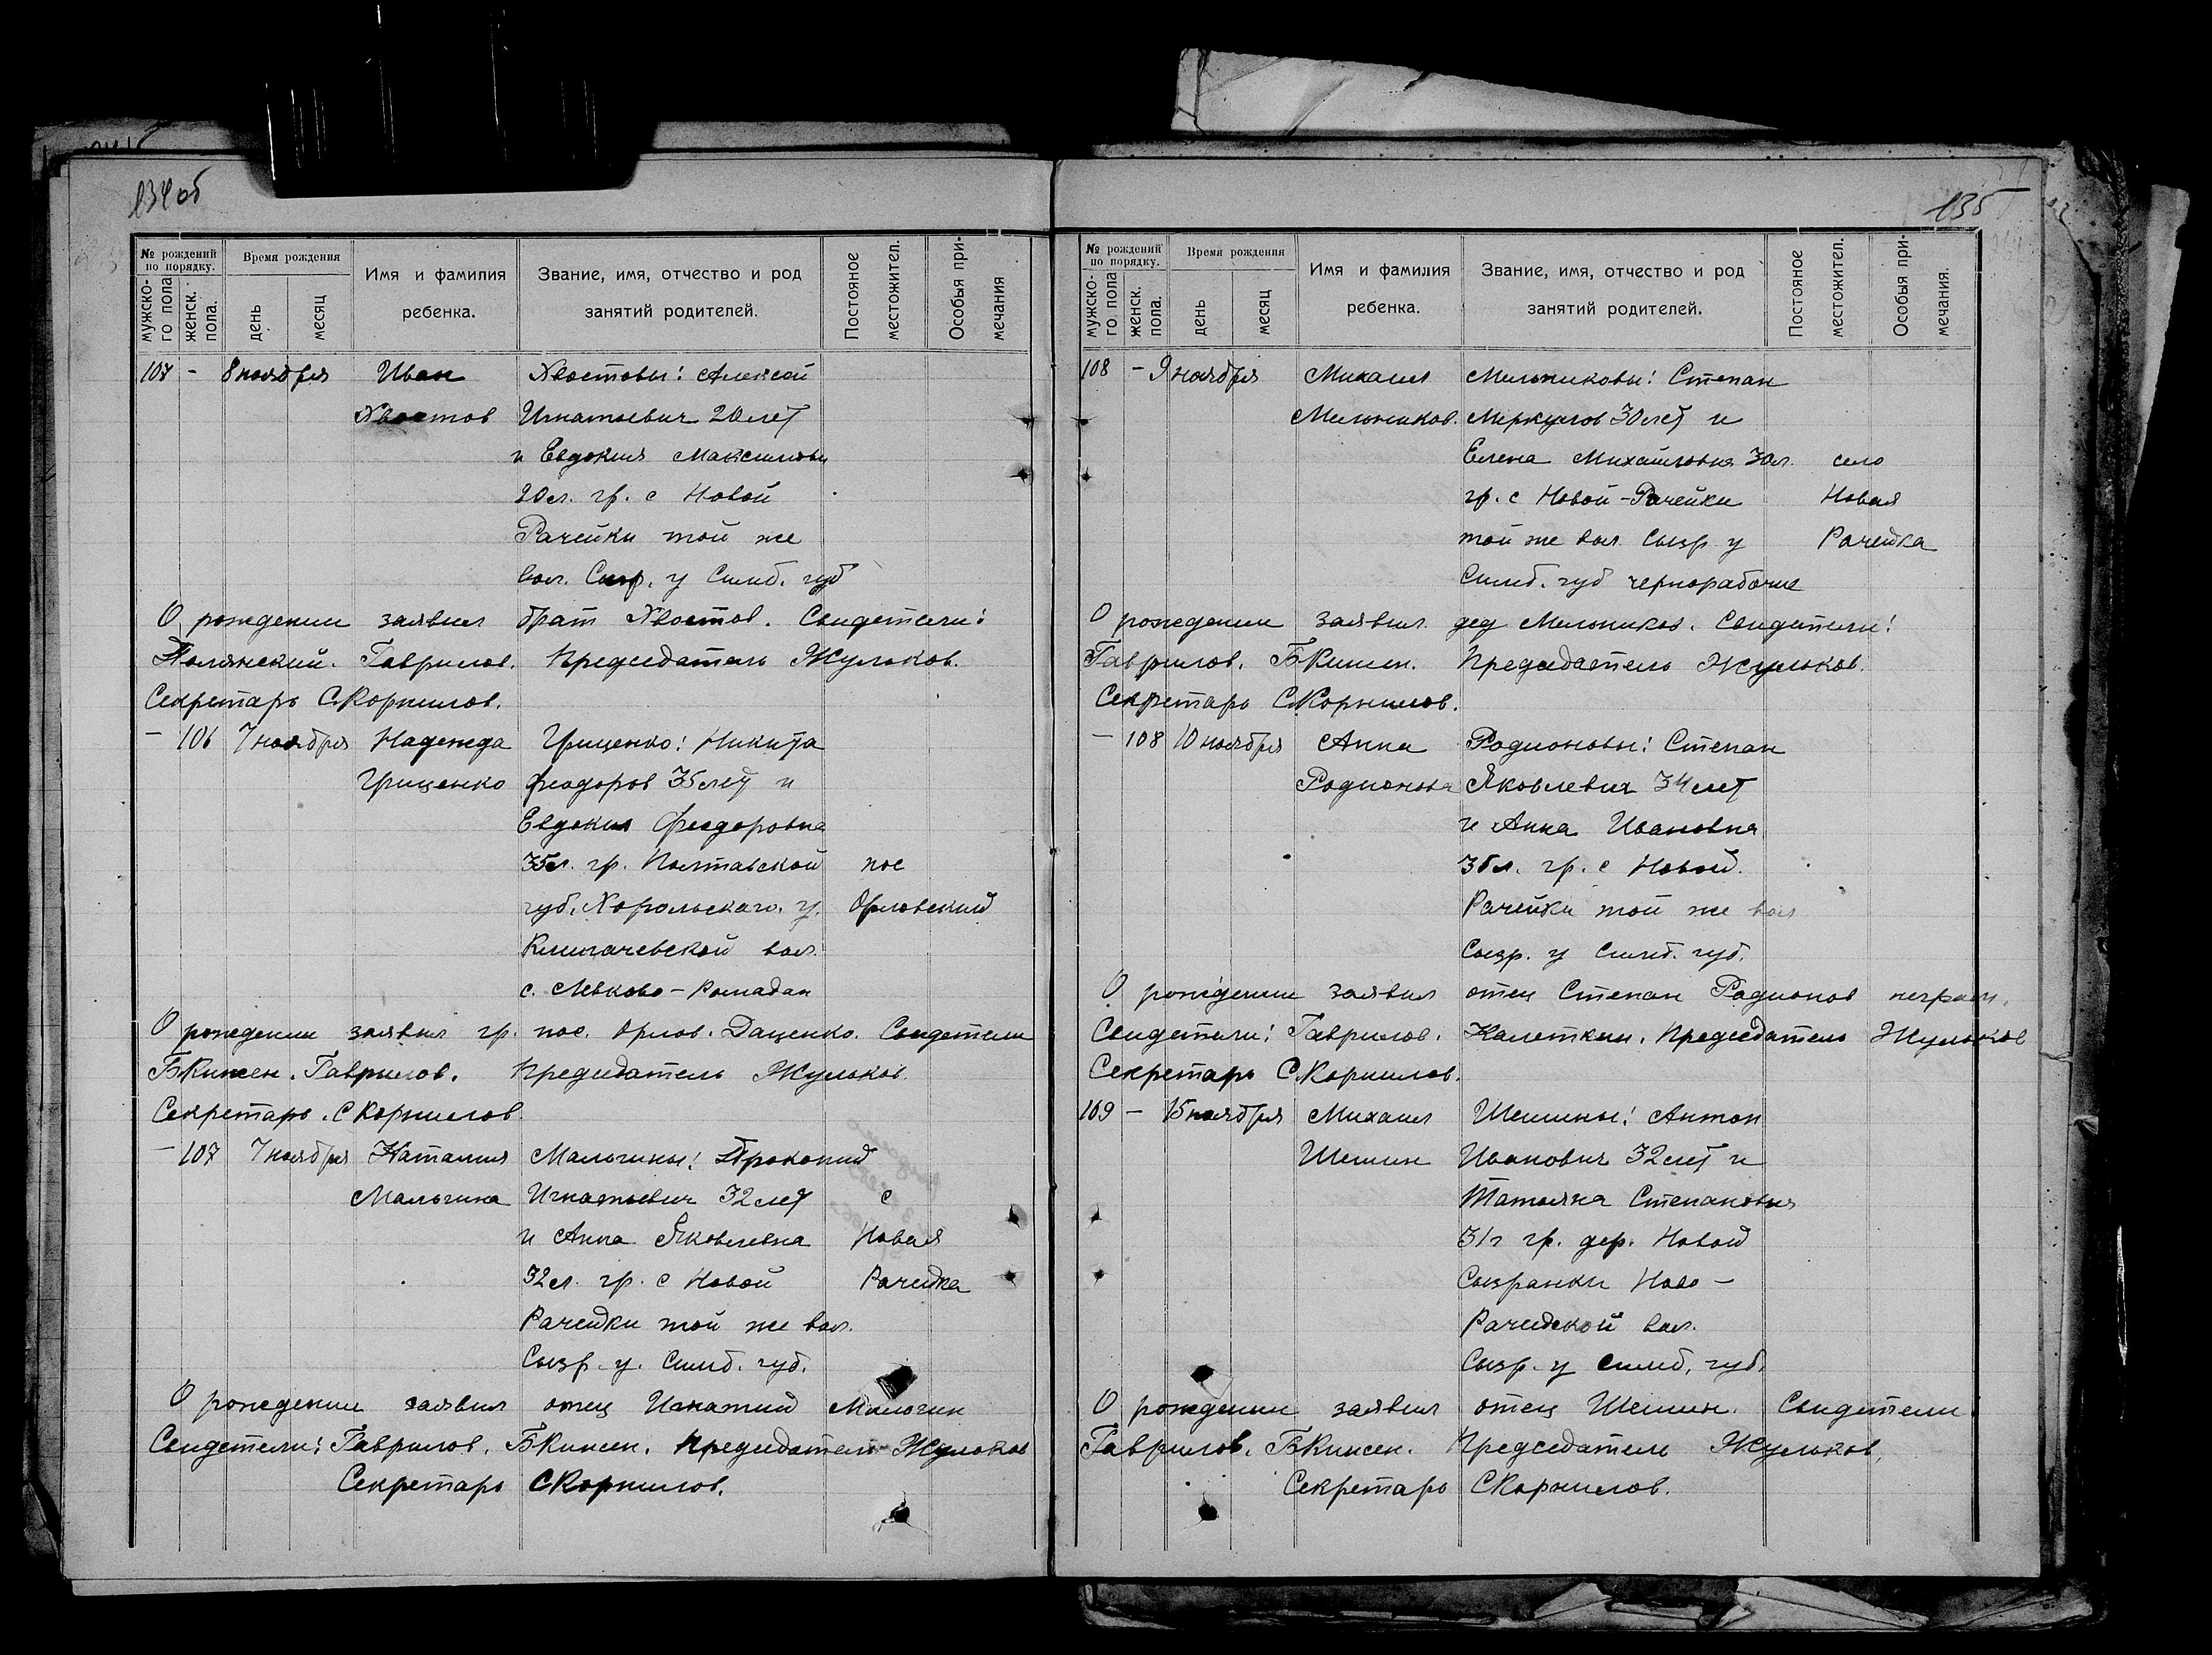 134об
№ рождений по порядку.
Время рождения
Имя и фамилия ребенка.
Звание, имя, отчество и род занятий родителей.
Постоянное местожител.
Особыя примечания
мужско-го пола
женск. пола.
день
месяц
107 - 8 ноября Иван Хвостовы: Алексей
Хвостов Игнатьевич 20 лет
и Евдокия Максимовн
20 л. гр. с Новой
Рачейки той же
вол. Сызр. у Симб. губ
О рождении заявил брат Хвостов. Свидетели:
Полянский. Гаврилов. Председатель Жульков.
Секретарь С.Корнилов.
- 106 7 ноября Надежда Гриценко: Никита
Гриценко Феодоров 35 лет и
Евдокия Феодоровна
35 л. гр. Полтавской пос
губ. Хорольскаго. у. Орловский
вол.
с. Левково-Ромадан
О рождении заявил гр. пос. Орлов. Даценко. Свидетели
БКинсен. Гаврилов. Председатель Жульков.
Секретарь. С Корнилов
- 107 7 ноября Наталия Мальгины: Прокопий
Мальгина Игнатьевич 32 лет с
и Анна Яковлевна Новая
32 л. гр. с Новой Рачейка
Рачейки той же вол.
Сызр. у. Симб. губ.
О рождении заявил отец Игнатий Мальгин
Свидетели: Гаврилов. БКинсен. Председатель Жульков
Секретарь СКорнилов.
135
№ рождений по порядку.
Время рождения
Имя и фамилия ребенка.
Звание, имя, отчество и род занятий родителей.
Постоянное местожител.
Особыя примечания.
мужско-го пола
женск. пола.
день
месяц
108 - 9 ноября Михаил Мельниковы: Степан
Мельников. Меркулов 30 лет и
Елена Михайловна 30 л. село
гр. с Новой-Рачейки Новая
той же вол Сызр у Рачейка
Симб. губ чернорабочие
О рождении заявил дед Мельников. Свидетели:
Гаврилов. БКинсен. Председатель Жульков.
Секретарь С.Корнилов.
- 108 10 ноября Анна Родионовы: Степан
Родионова Яковлевич 34 лет
и Анна Ивановна
35 л. гр. с Новой
Рачейки той же вол
Сызр. у Симб. губ.
О рождении заявил отец Степан Родионов неграм.
Свидетели: Гаврилов. Калеткин. Председатель Жульков
Секретарь С.Корнилов.
109 - 15 ноября Михаил Шешины: Антон
Шешин Иванович 32 лет и
Татьяна Степановна
31 г гр. дер. Новой
Сызранки Ново-
Рачейской вол.
Сызр. у Симб. губ.
О рождении заявил отец Шешин. Свидетели
Гаврилов. БКинсен. Председатель Жульков.
Секретарь СКорнилов.